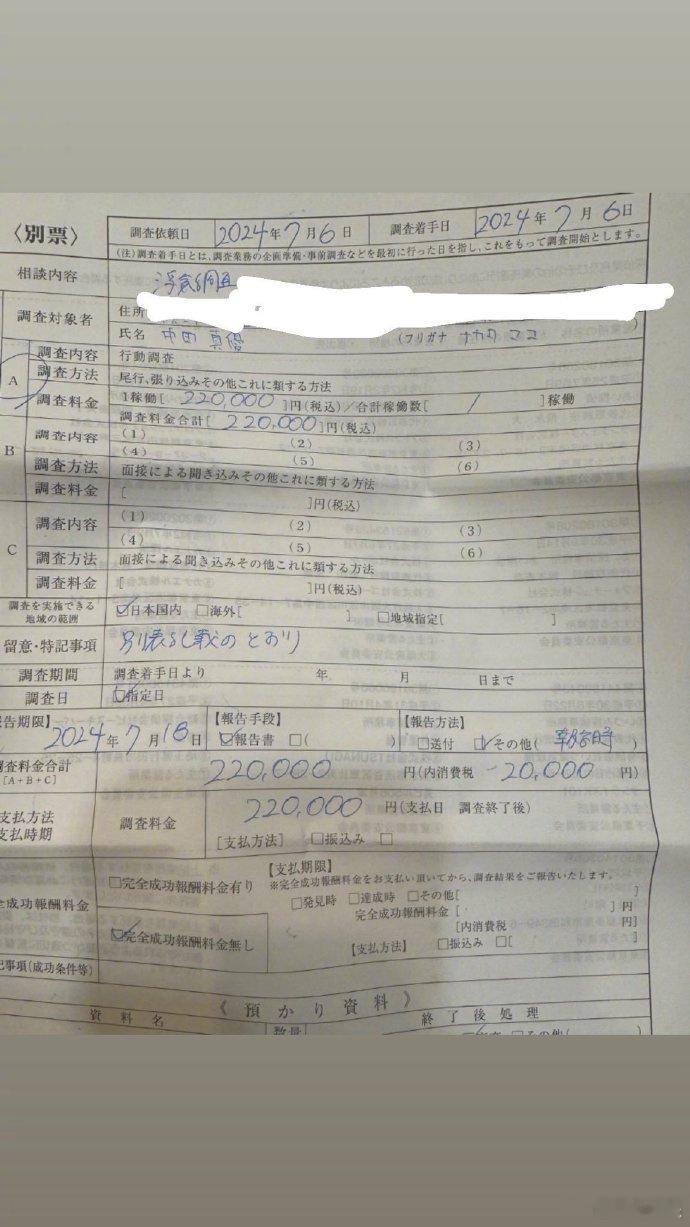 〈別票〉
調査依頼日 2024年7月6日 調査着手日 2024年7月6日
(注)調査着手日とは、調査業務の企画準備・事前調査などを最初に行った日を指し、これをもって調査開始とします。
相談内容
調査対象者 住所
氏名 中田 真優 (フリガナ ナカタ ママ )
A 調査内容 行動調査
調査方法 尾行、張り込みその他これに類する方法
調査料金 1稼働[ 220,000 ]円(税込)/合計稼働数[ / ]稼働
調査料金合計[ 220,000 ]円(税込)
B 調査内容 (1) (2) (3)
(4) (5) (6)
調査方法 面接による聞き込みその他これに類する方法
調査料金 [ ]円(税込)
C 調査内容 (1) (2) (3)
(4) (5) (6)
調査方法 面接による聞き込みその他これに類する方法
調査料金 [ ]円(税込)
調査を実施できる地域の範囲 ☑日本国内 □海外[ ] □地域指定[ ]
留意・特記事項 別表記載のとおり
調査期間 調査着手日より 年 月 日まで
調査日 ☑指定日
報告期限】 2024年7月18日 【報告手段】 ☑報告書 □( ) 【報告方法】 □送付 ☑その他( )
調査料金合計 [A+B+C] 220,000 円(内消費税 20,000 円)
支払方法 支払時期 調査料金 220,000 円(支払日 調査終了後)
[支払方法] □振込み □
完全成功報酬料金 □完全成功報酬料金有り 【支払期限】
※完全成功報酬料金をお支払い頂いてから、調査結果をご報告いたします。
□発見時 □達成時 □その他[ ]
完全成功報酬料金[ ]円
[内消費税 円]
☑完全成功報酬料金無し 【支払方法】 □振込み □[ ]
記事項(成功条件等)
《預かり資料》
資料名 数量 終了後処理
□その他( )